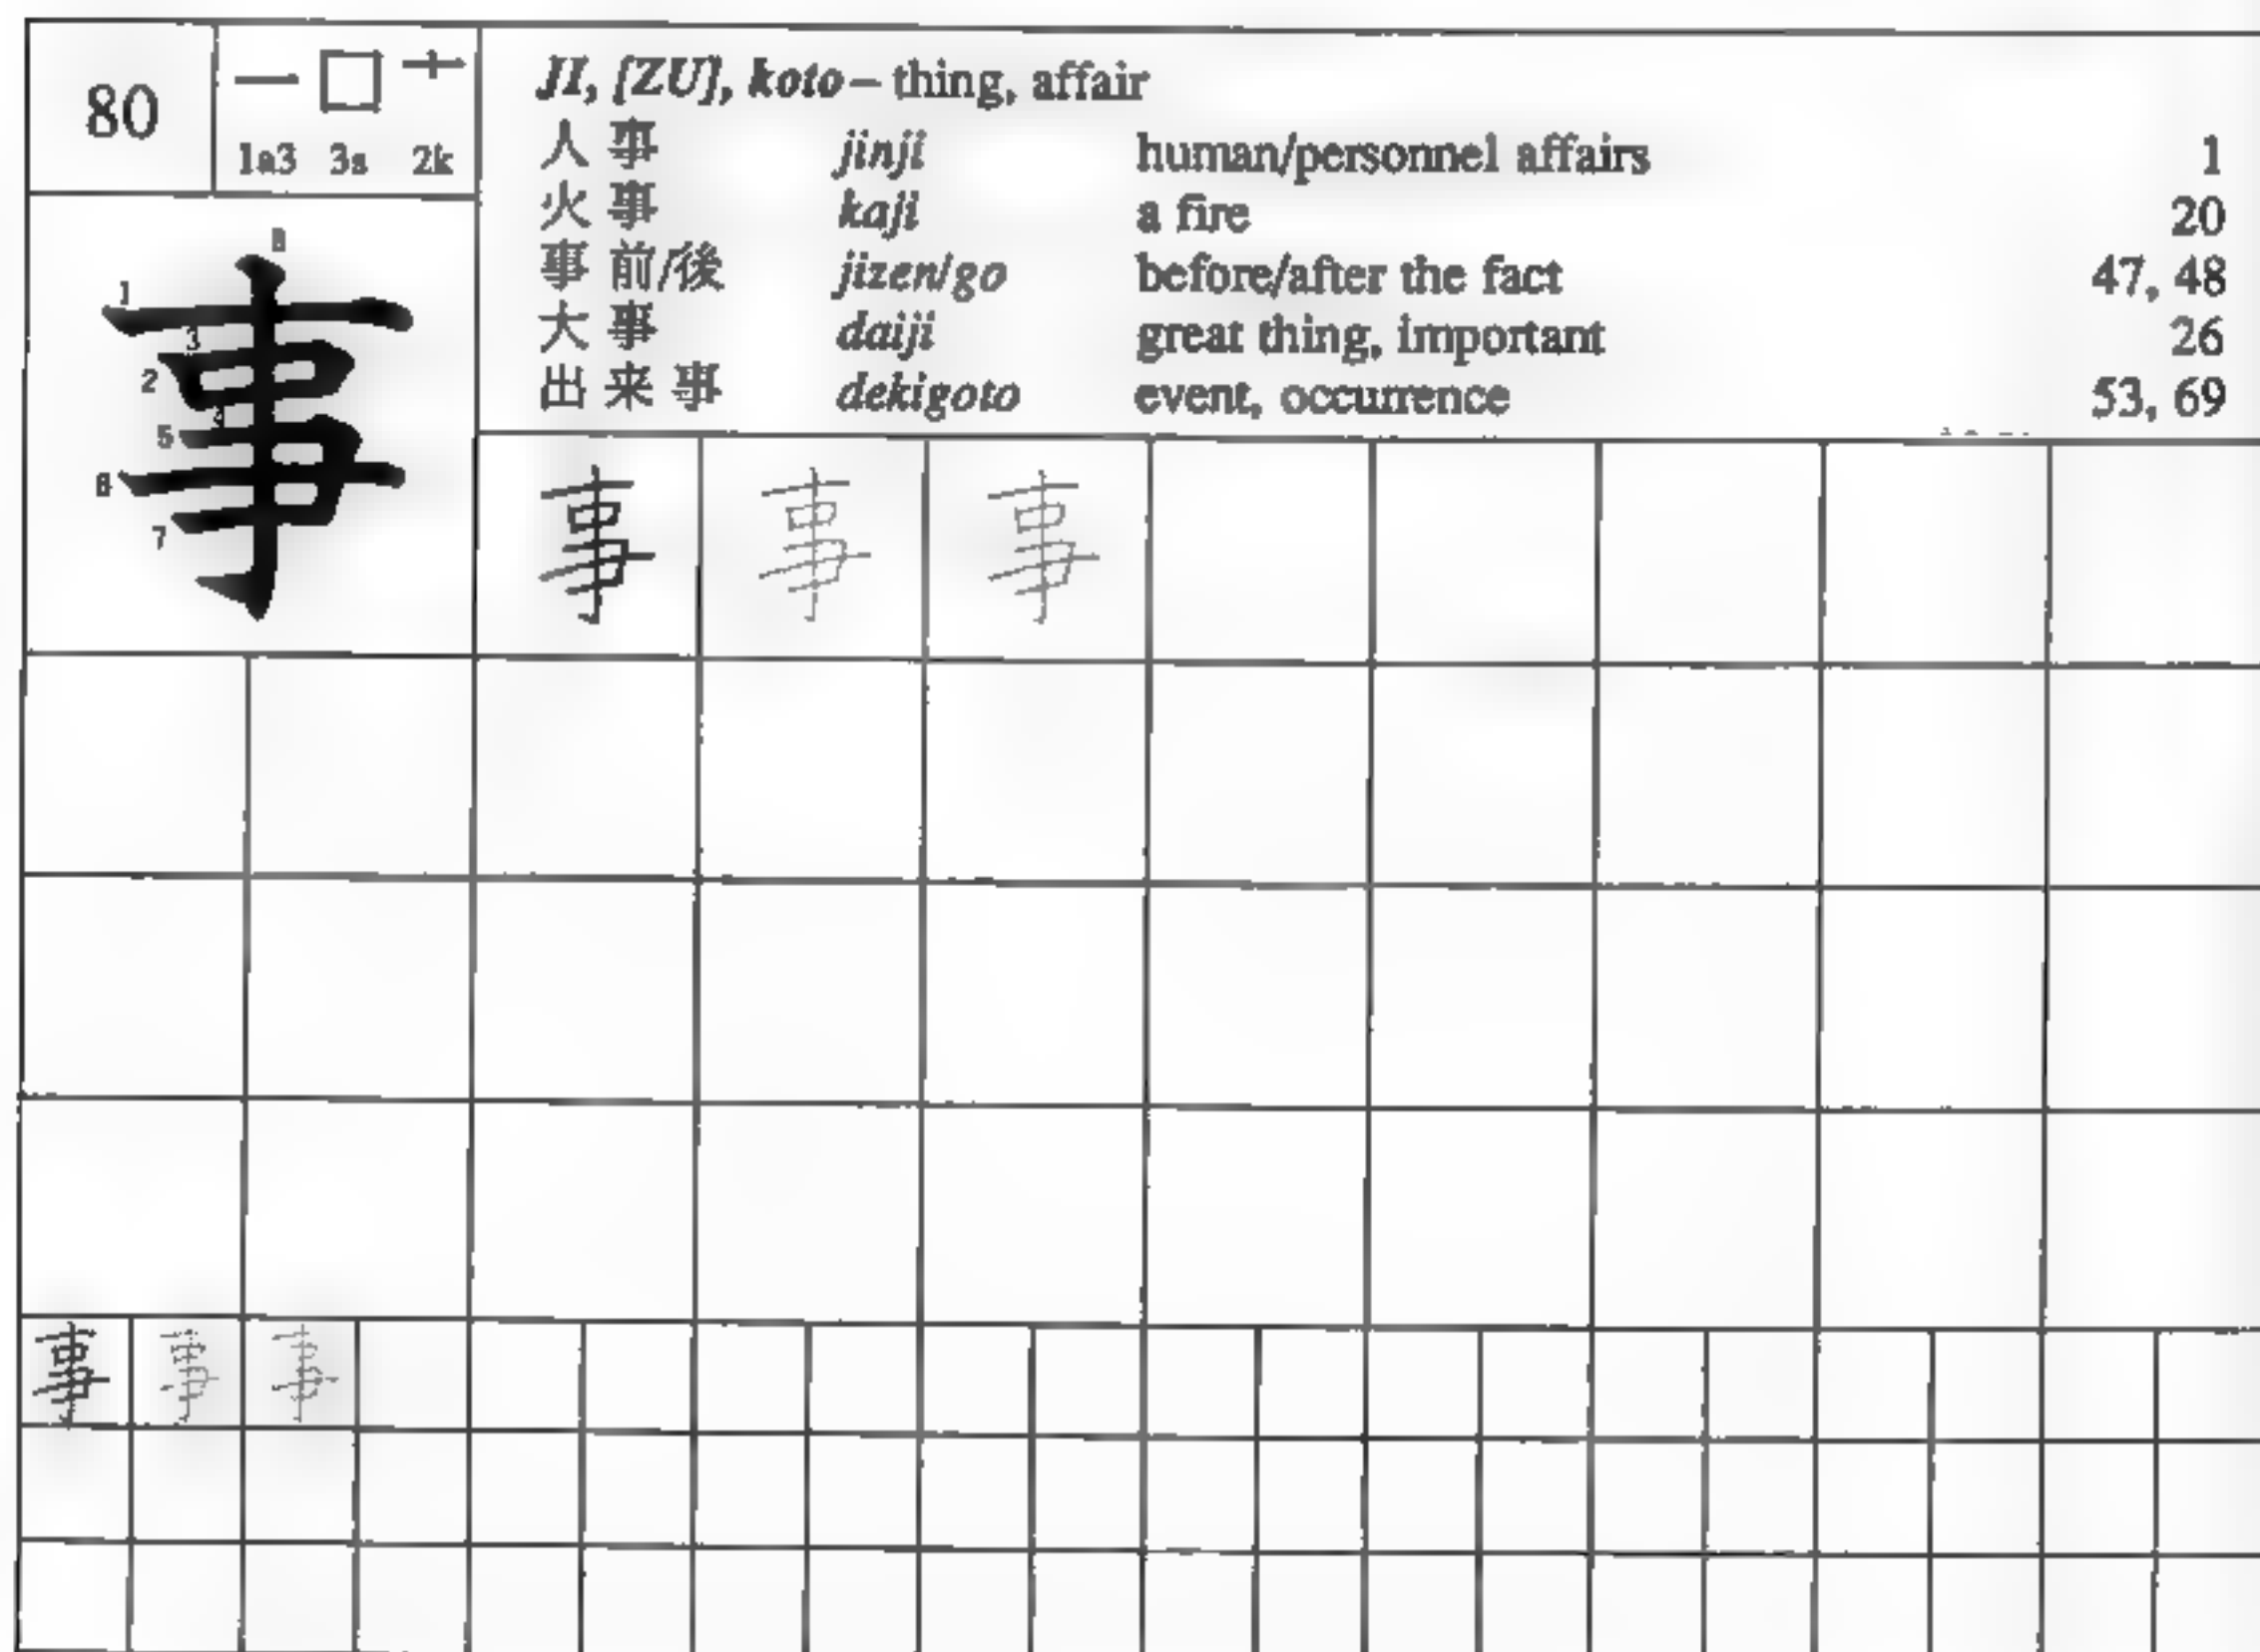 80
一 口 十
1a3 3s 2k
JI, [ZU], koto – thing, affair
人事 jinji human/personnel affairs 1
火事 kaji a fire 20
事前/後 jizen/go before/after the fact 47, 48
大事 daiji great thing, important 26
出来事 dekigoto event, occurrence 53, 69
事
1
2
3
4
5
6
7
8
事 事 事
事 事 事